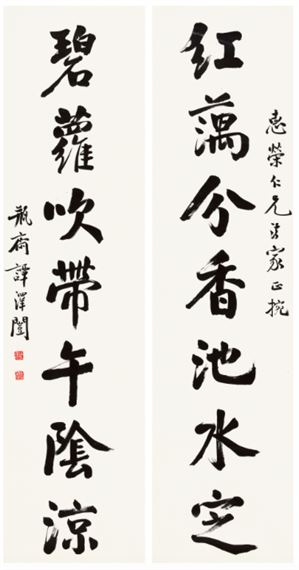 惠榮仁兄法家正捥
紅蕅分香池水定
碧蘿吹帶午陰涼
瓶齋譚澤闓